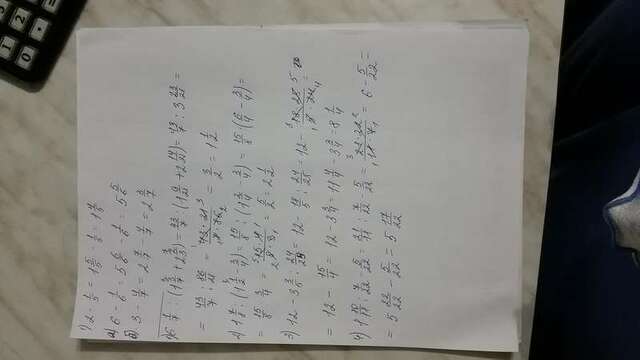 1) 2 - 1/5 = 1 5/5 - 1/5 = 1 4/5
а) 6 - 1/6 = 5 6/6 - 1/6 = 5 5/6
б) 3 - 4/7 = 2 7/7 - 4/7 = 2 3/7
6 1/7 : (1 3/7 + 2 2/3) = 43/7 : (1 9/21 + 2 14/21) = 43/7 : 3 23/21 =
= 43/7 : 86/21 = 43·21/7·86 = 3/2 = 1 1/2
2) 1 7/8 : (1 1/2 - 3/4) = 15/8 : (1 2/4 - 3/4) = 15/8 : (6/4 - 3/4) =
= 15/8 : 3/4 = 15·4/8·3 = 5/2 = 2 1/2
3) 12 - 3 3/5 : 24/25 = 12 - 18/5 : 24/25 = 12 - 18·25/5·24 =
= 12 - 15/4 = 12 - 3 3/4 = 11 4/4 - 3 3/4 = 8 1/4
4) 1 10/11 : 7/22 - 5/22 = 21/11 : 7/22 - 5/22 = 21·22/11·7 = 6 - 5/22 =
= 5 22/22 - 5/22 = 5 17/22